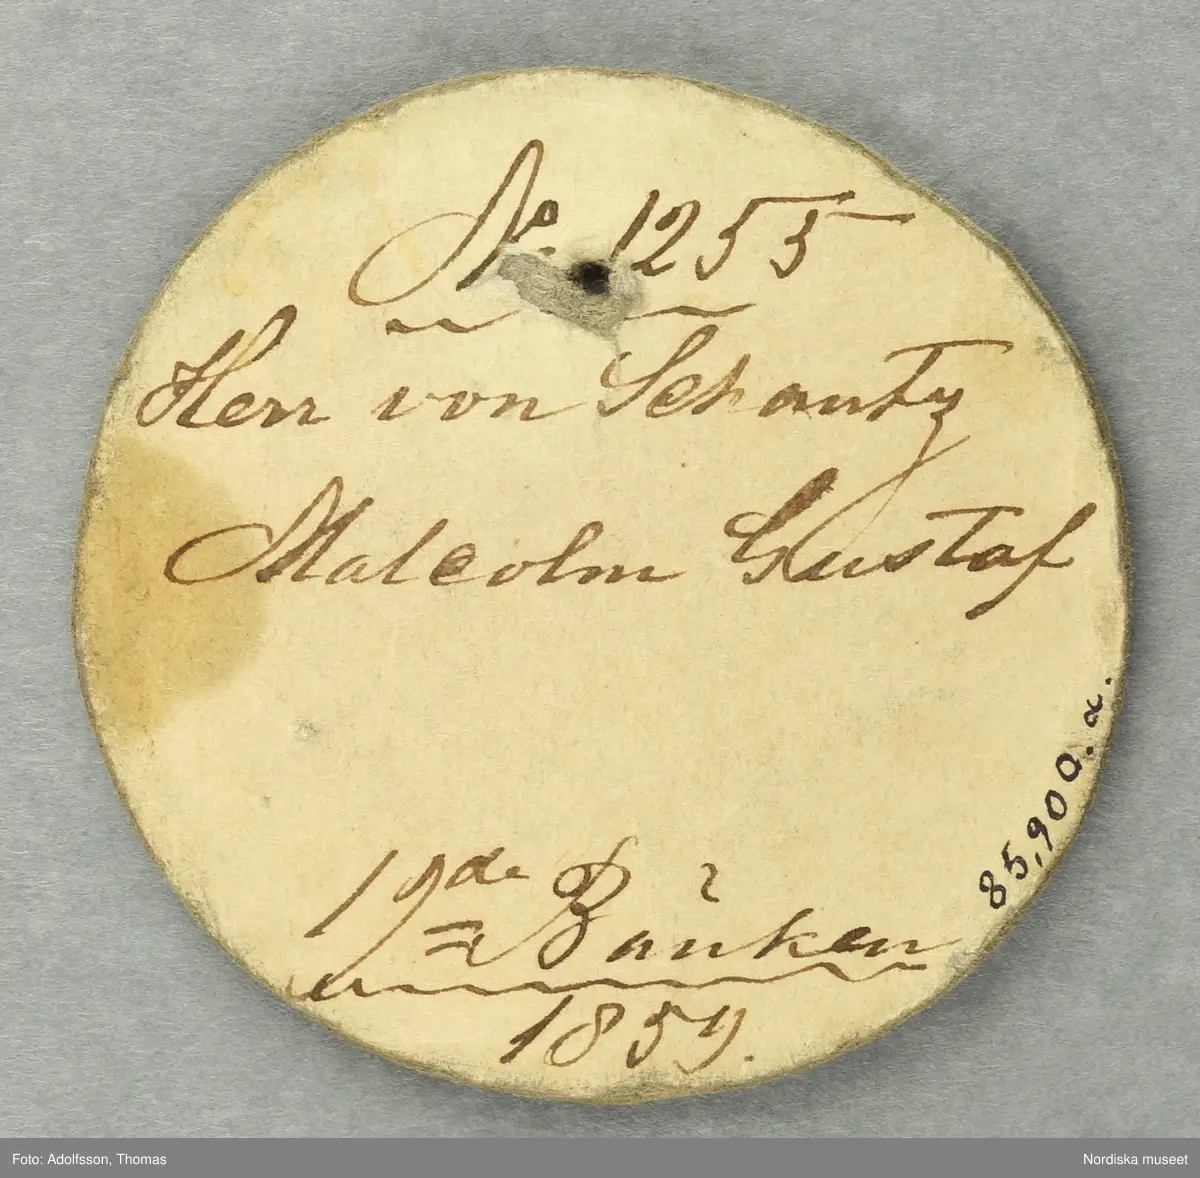 No. 1255
Herr von Schantz
Malcolm Gustaf
19de Bänken
1859.
85,900.a.
Foto: Adolfsson, Thomas
Nordiska museet